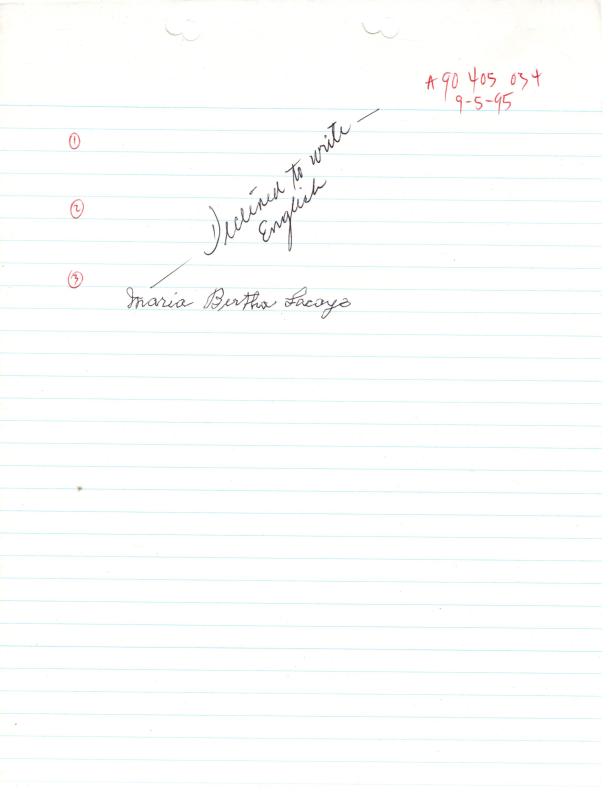 A90 405 034
9-5-95
①
②
③
Declined to write —
English
Maria Bertha Lacayo